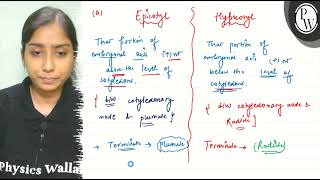 (a) Epicotyl
That portion of
embryonal axis (+)nt
above the level of
cotyledons.
{ b/w cotyledonary
node & plumule }
→ Terminate → Plumule
Hypocotyl
That portion of
embryonal axis (+)nt
below the level of
cotyledons.
{ b/w cotyledonary node &
Radicle }
Terminate → Radicle
PW
Physics Walla